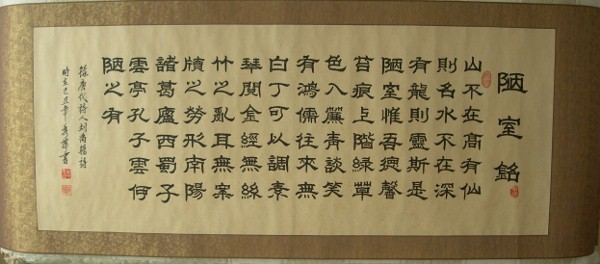 陋室銘
山不在高有仙
則名水不在深
有龍則靈斯是
陋室惟吾德馨
苔痕上階綠草
色入簾青談笑
有鴻儒往來無
白丁可以調素
琴閱金經無絲
竹之亂耳無案
牘之勞形南陽
諸葛廬西蜀子
雲亭孔子雲何
陋之有
錄唐代詩人劉禹錫詩
己丑年 書